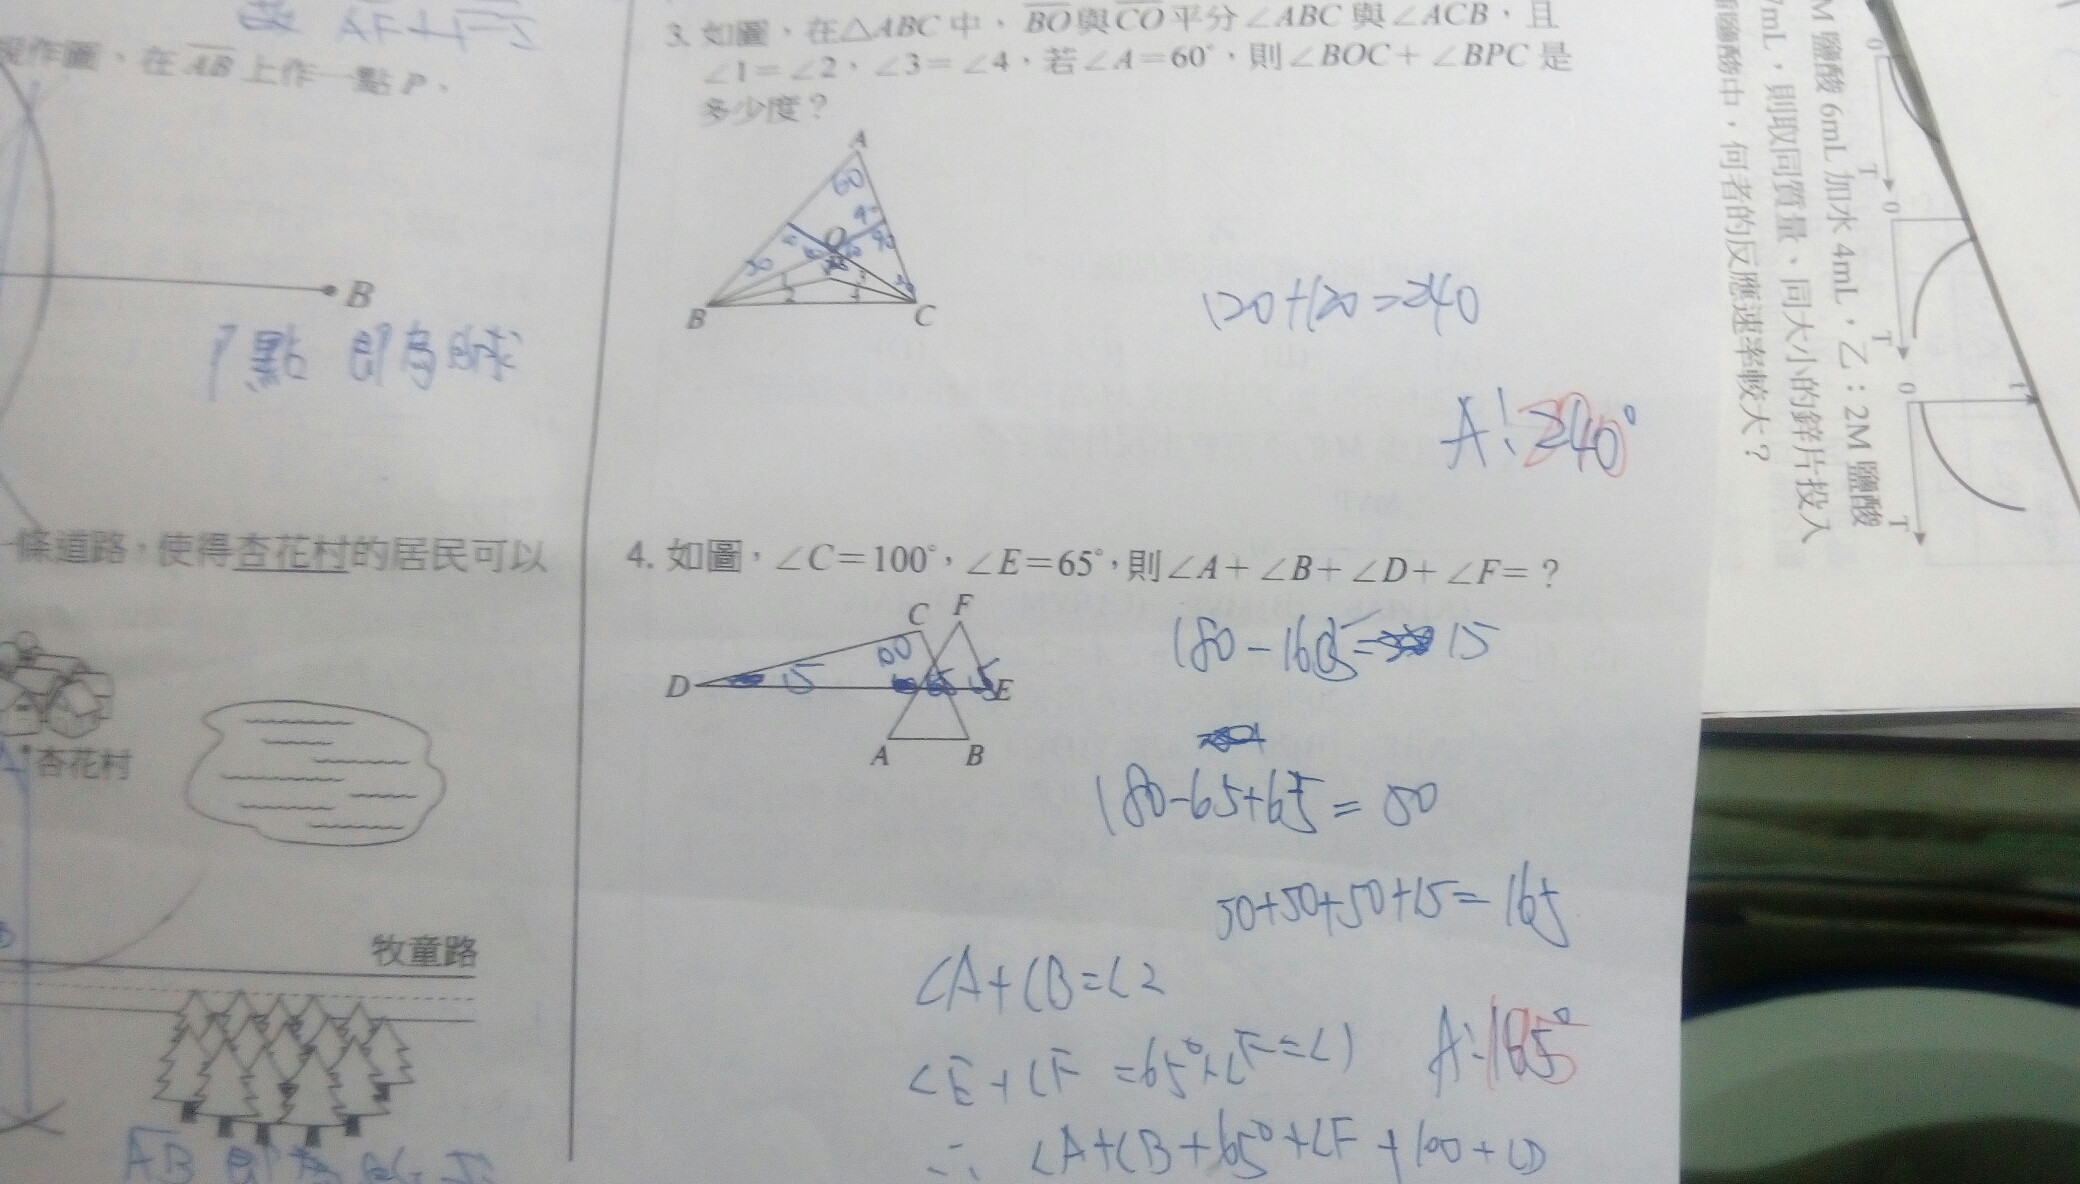 故 AF+
規作圖，在AB上作一點P、
B
P點 即為所求
一條道路，使得杏花村的居民可以
杏花村
牧童路
AB 即為所求
3. 如圖，在△ABC中，BO與CO平分∠ABC與∠ACB，且
∠1=∠2，∠3=∠4，若∠A=60°，則∠BOC+∠BPC是
多少度？
A
60
O
30
1
2
3
4
B
C
120+120=240
A:240°
4. 如圖，∠C=100°，∠E=65°，則∠A+∠B+∠D+∠F=？
C F
100
D
15
65
E
A
B
180-165=15
180-65+65=50
50+50+50+15=165
∠A+∠B=∠2
∠E+∠F=65°+∠F=∠1
A:165°
∴ ∠A+∠B+65°+∠F+100+∠D
M 鹽酸 6mL 加水 4mL，乙：2M 鹽酸
7mL，則取同質量、同大小的鋅片投入
鹽酸中，何者的反應速率較大？
0
T
0
T
0
T